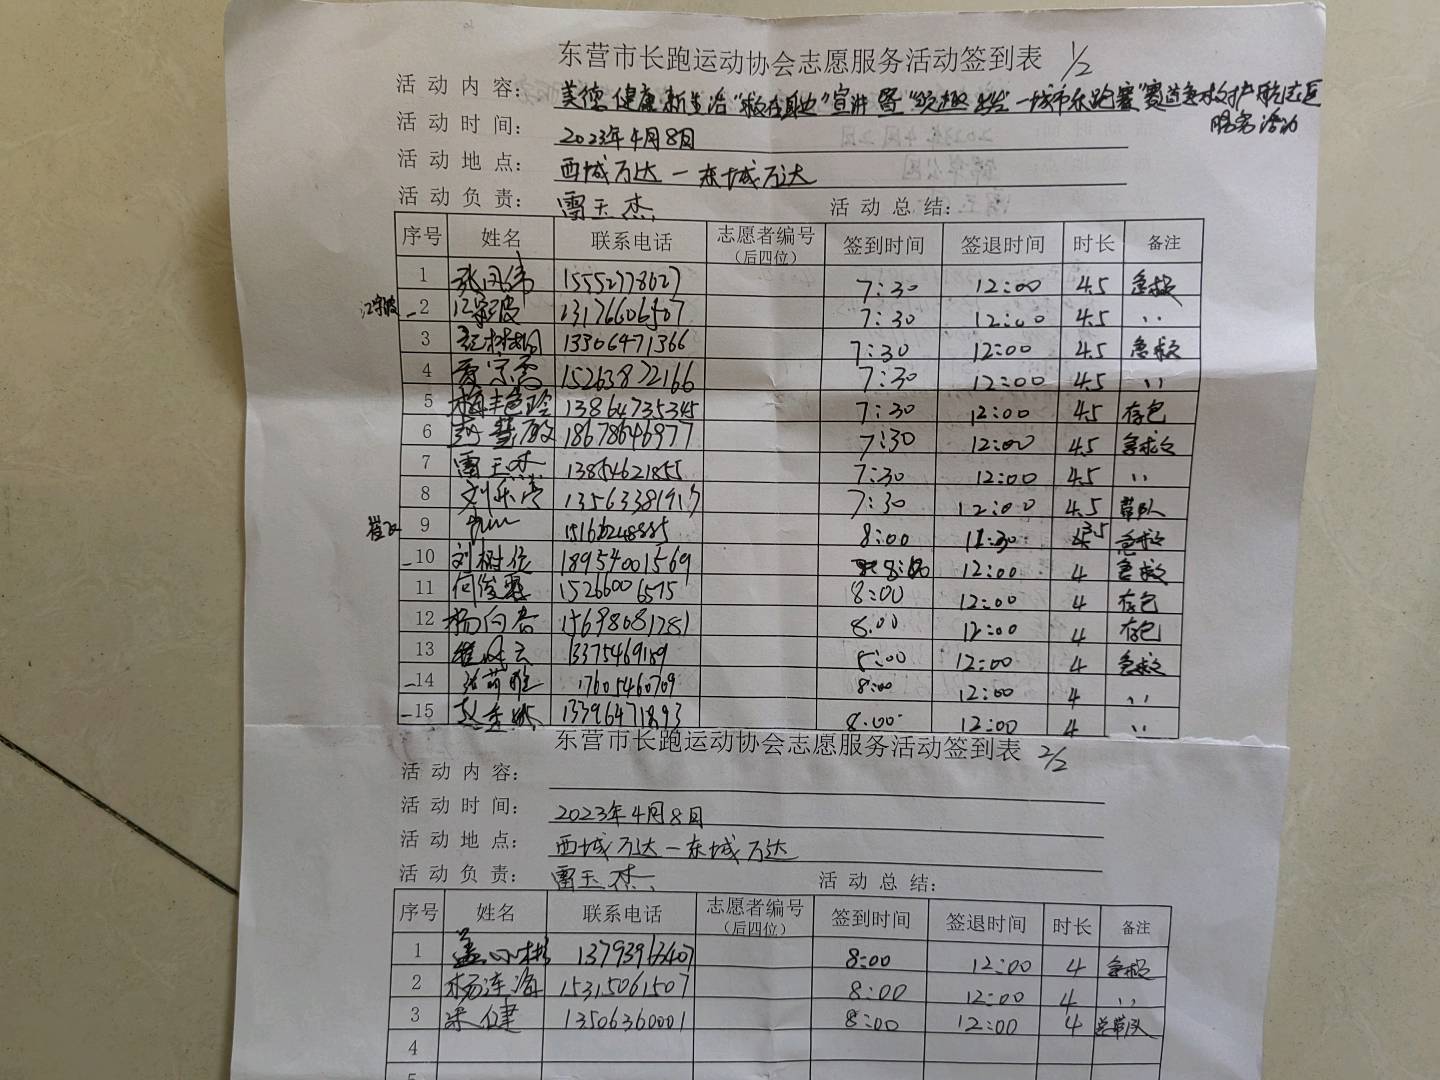 东营市长跑运动协会志愿服务活动签到表 1/2
活动内容: 美德健康新生活"救在身边"宣讲暨 一城市乐跑赛"赛道急救护航志愿
服务活动
活动时间: 2023年4月8日
活动地点: 西城万达一东城万达
活动负责: 雷玉杰 活动总结:
序号 姓名 联系电话 志愿者编号(后四位) 签到时间 签退时间 时长 备注
1 张风伟 15552778627 7:30 12:00 4.5 急救
江宇波 2 江宇波 13176606507 7:30 12:00 4.5 ''
3 13306471366 7:30 12:00 4.5 急救
4 15263872166 7:30 12:00 4.5 ''
5 13864735345 7:30 12:00 4.5 存包
6 慧敏 18678646977 7:30 12:00 4.5 急救
7 雷玉杰 13854621855 7:30 12:00 4.5 ''
8 刘乐亮 13563381917 7:30 12:00 4.5 带队
9 8:00 11:30 3.5 急救
10 刘树信 18954001569 8:00 12:00 4 急救
11 何俊霞 15266006575 8:00 12:00 4 存包
12 杨向春 15698081281 8:00 12:00 4 存包
13 云 13375469189 8:00 12:00 4 急救
14 17605460709 8:00 12:00 4 ''
15 13396471893 8:00 12:00 4 ''
东营市长跑运动协会志愿服务活动签到表 2/2
活动内容:
活动时间: 2023年4月8日
活动地点: 西城万达一东城万达
活动负责: 雷玉杰 活动总结:
序号 姓名 联系电话 志愿者编号(后四位) 签到时间 签退时间 时长 备注
1 盖小彬 13793963407 8:00 12:00 4 急救
2 杨连海 15315061507 8:00 12:00 4 ''
3 宋健 13506360001 8:00 12:00 4 总带队
4
5